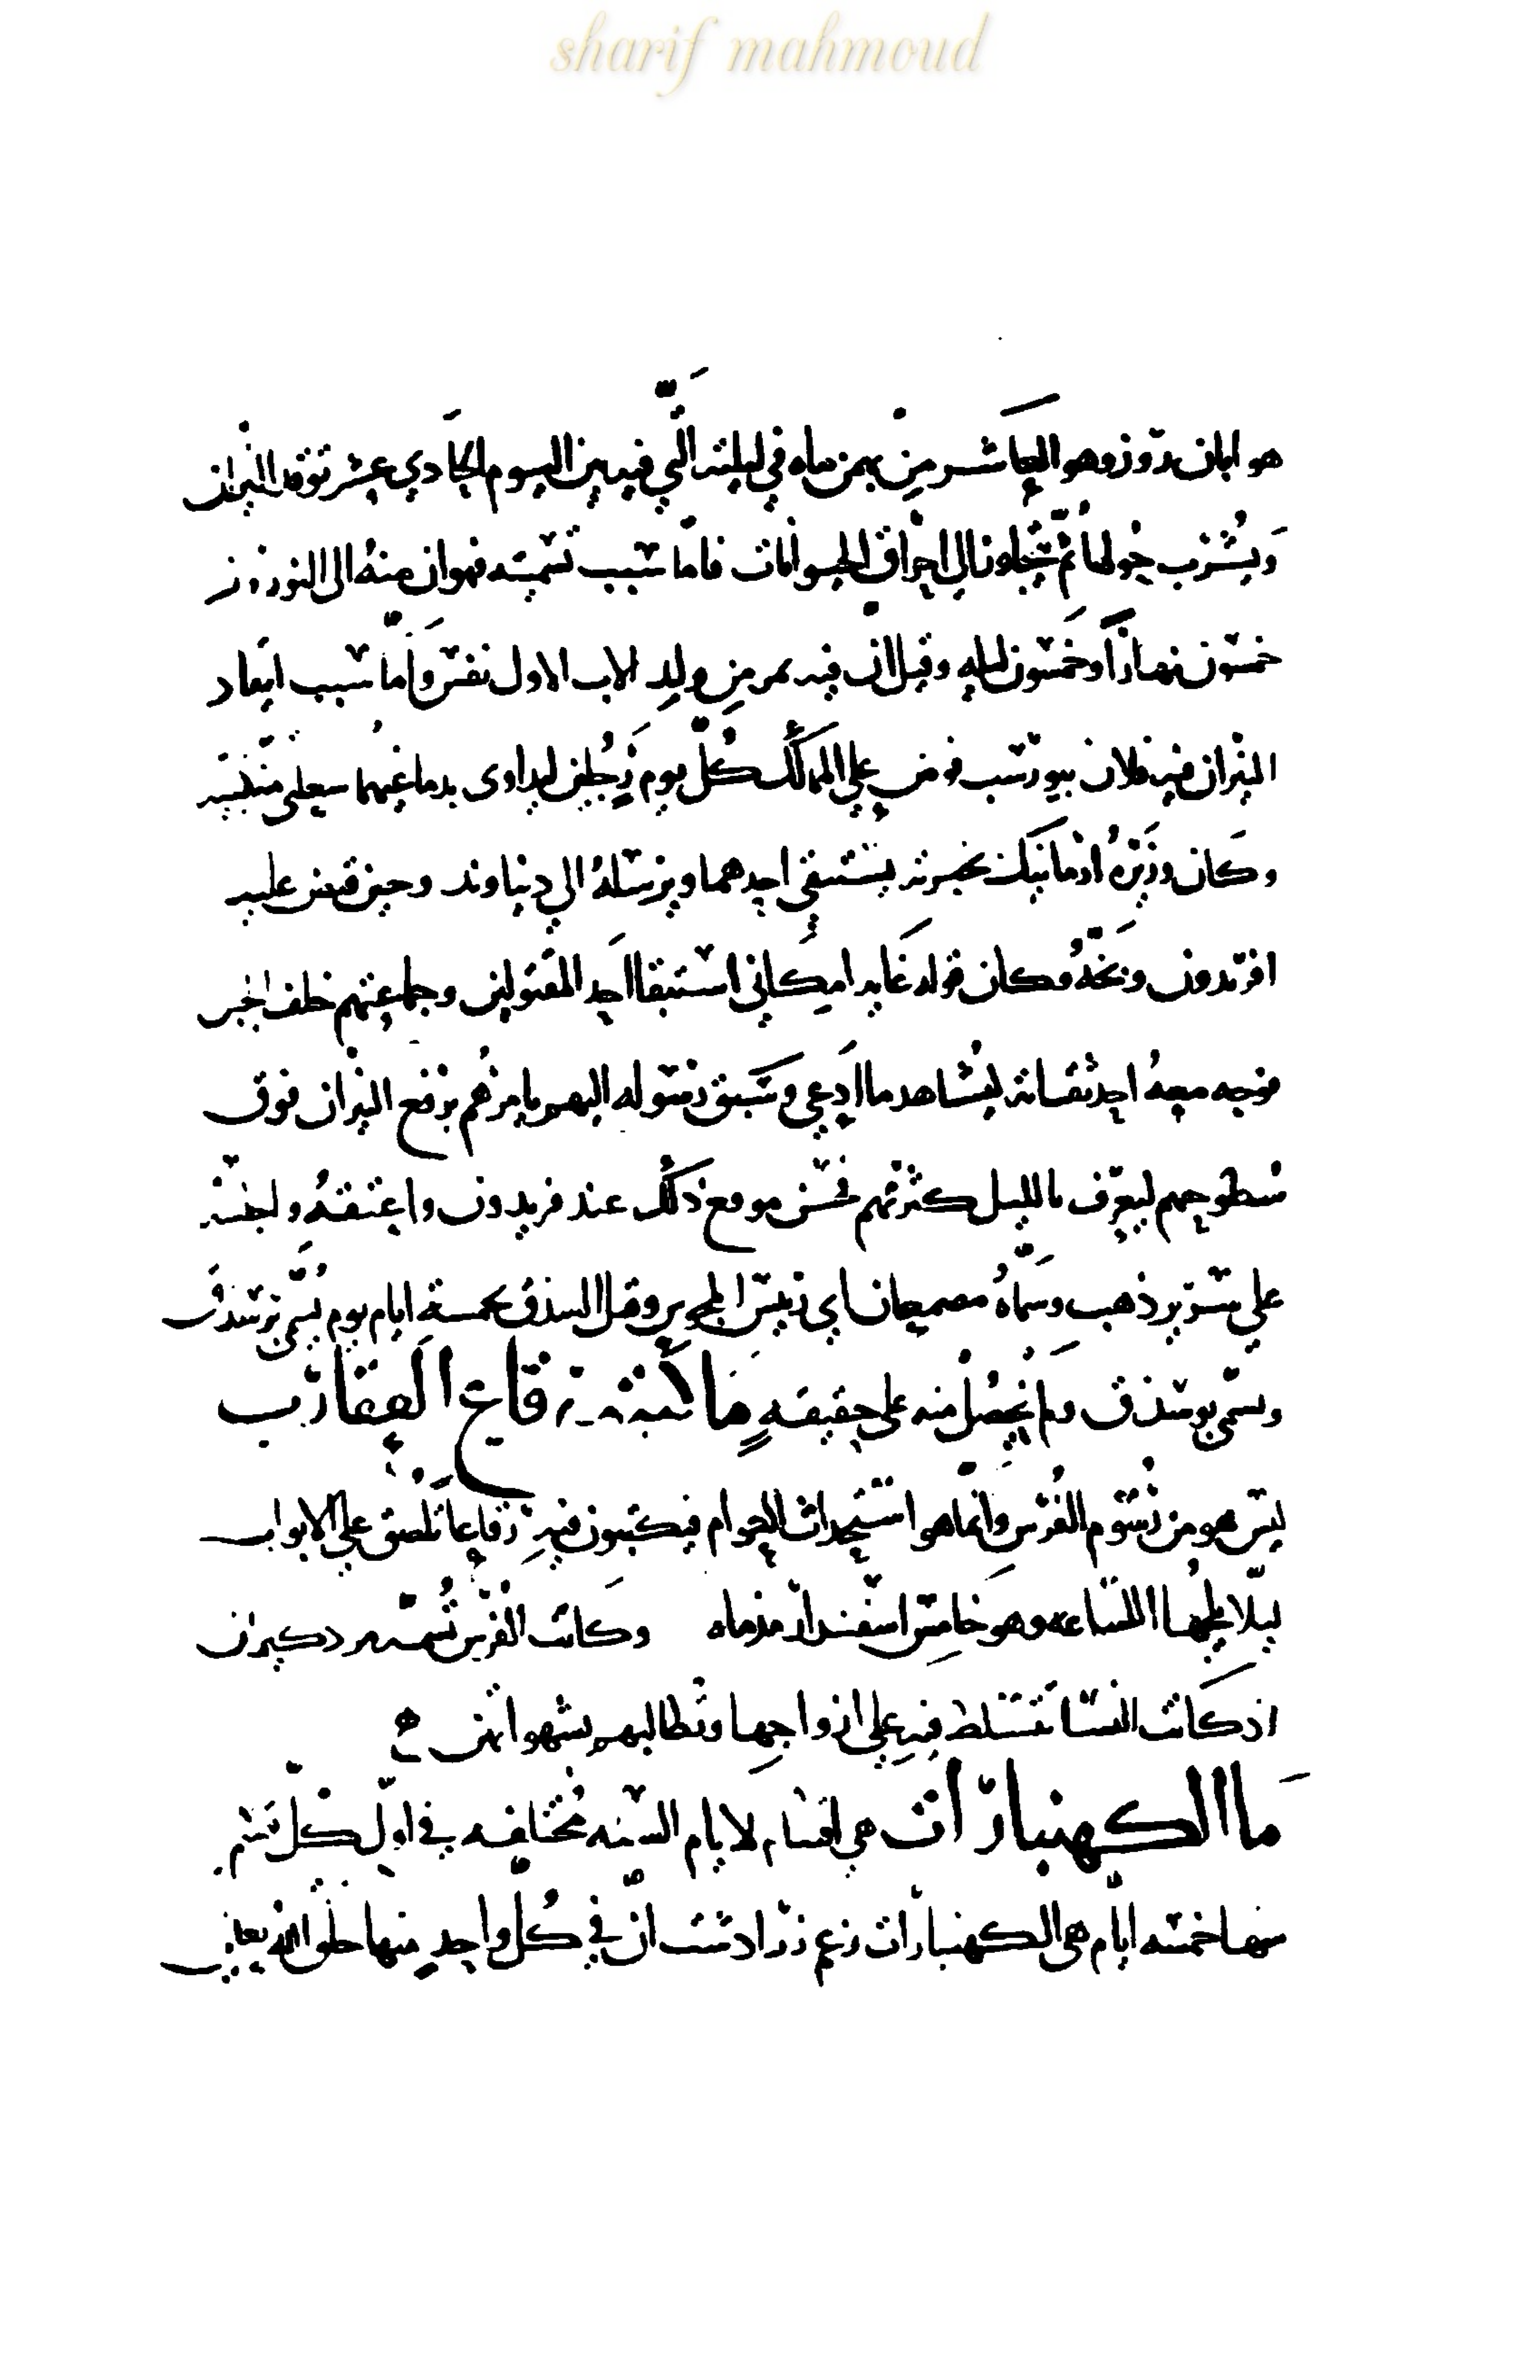 sharif mahmoud
هو ابان روز وهو العاشر من بهمن ماه في ليلته التي فيه بين اليوم الحادي عشر توقد النيران
ويشرب حولها ثم تجاوزنا الى احراق الحيوانات فاما سبب تسميته فهو ان منه الى النوروز
خمسون نهارا وخمسون ليله وقيل ان فيه تم من ولد الاب الاول نفس واما سبب ايقاد
النيران فيه فلان بيوراسب فرض على المملكة كل يوم رجلين ليداوى بدماغيهما سلعتى منكبيه
وكان وزيره ازمائيك بخيرته يستبقي احدهما ويرسله الى دنباوند وحين قبض عليه
افريدون وبخه وكان قوله غايه امكاني استبقا احد المقتولين وجماعتهم خلف الجبل
فوجه معه احد ثقاته ليشاهد ما ادعي وسبق رسوله اليهم يامرهم برفع النيران فوق
سطوحهم ليعرف بالليل كثرتهم فحسن موقع ذلك عند فريدون واعتقه واجلسه
على سرير ذهب وسماه مصمغان اي رئيس المجوس وقبل السذق بخمسة ايام يوم يسمى برسذق
ويسمى نوسذق ولم نحصل منه على حقيقه ما كتبة رقاع العقارب
ليس هو من رسوم الفرس وانما هو استحداث العوام فيكتبون فيه رقاعا تلصق على الابواب
ليلا لمضار اللساعه وهو خامس اسفندارمذماه وكانت الفرس تسميه مردكيران
اذ كانت النسا تتسلط فيه على ازواجها وتطالبهم بشهواتهن
ما الكهنبارات هي اقسام لايام السنه مختلفه في اول كل قسم
منها خمسه ايام هي الكهنبارات زعم زرادشت ان في كل واحد منها خلق الله تعالى